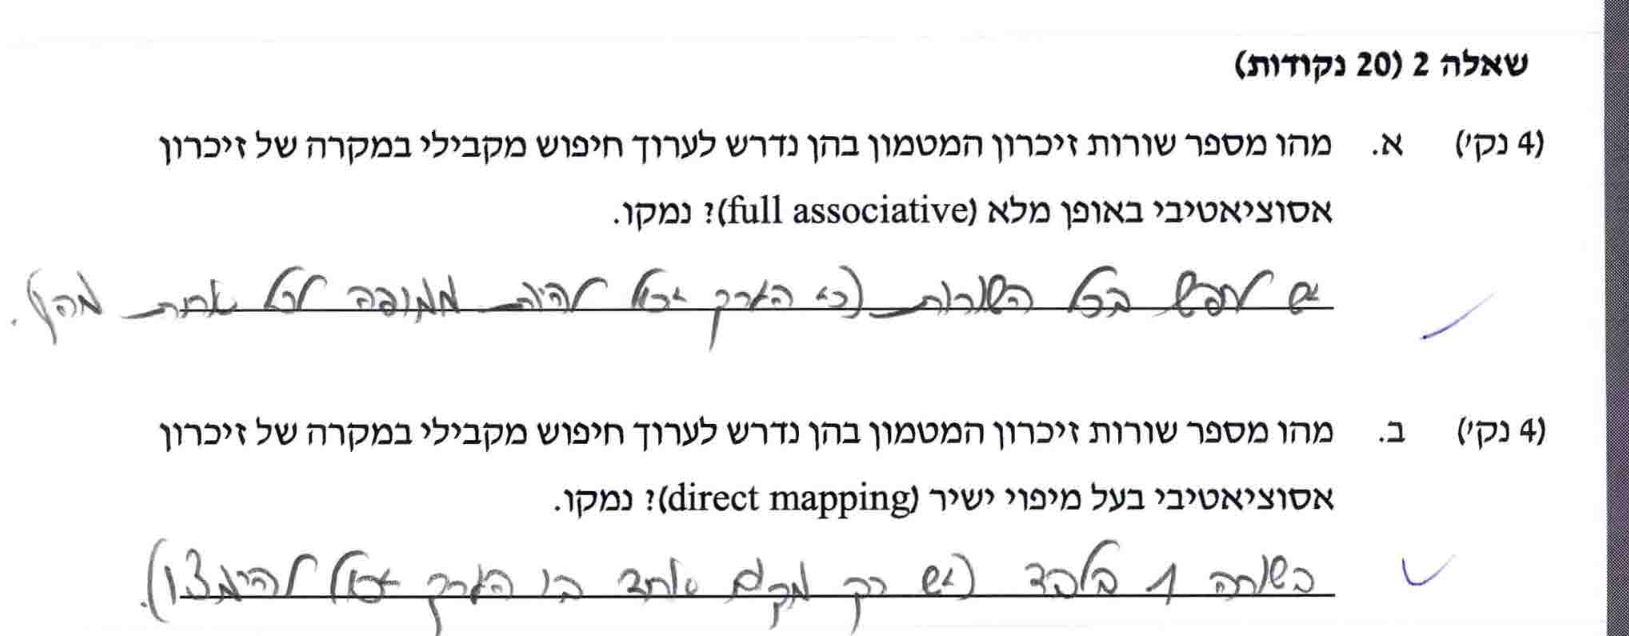 שאלה 2 (20 נקודות)
(4 נק') א. מהו מספר שורות זיכרון המטמון בהן נדרש לערוך חיפוש מקבילי במקרה של זיכרון
אסוציאטיבי באופן מלא (full associative)? נמקו.
יש לחפש בכל השורות (כי הערך יכול להיות ממופה לכל אחת מהן).
(4 נק') ב. מהו מספר שורות זיכרון המטמון בהן נדרש לערוך חיפוש מקבילי במקרה של זיכרון
אסוציאטיבי בעל מיפוי ישיר (direct mapping)? נמקו.
בשורה 1 בלבד (יש רק מקום אחד בו הערך יכול להימצא).